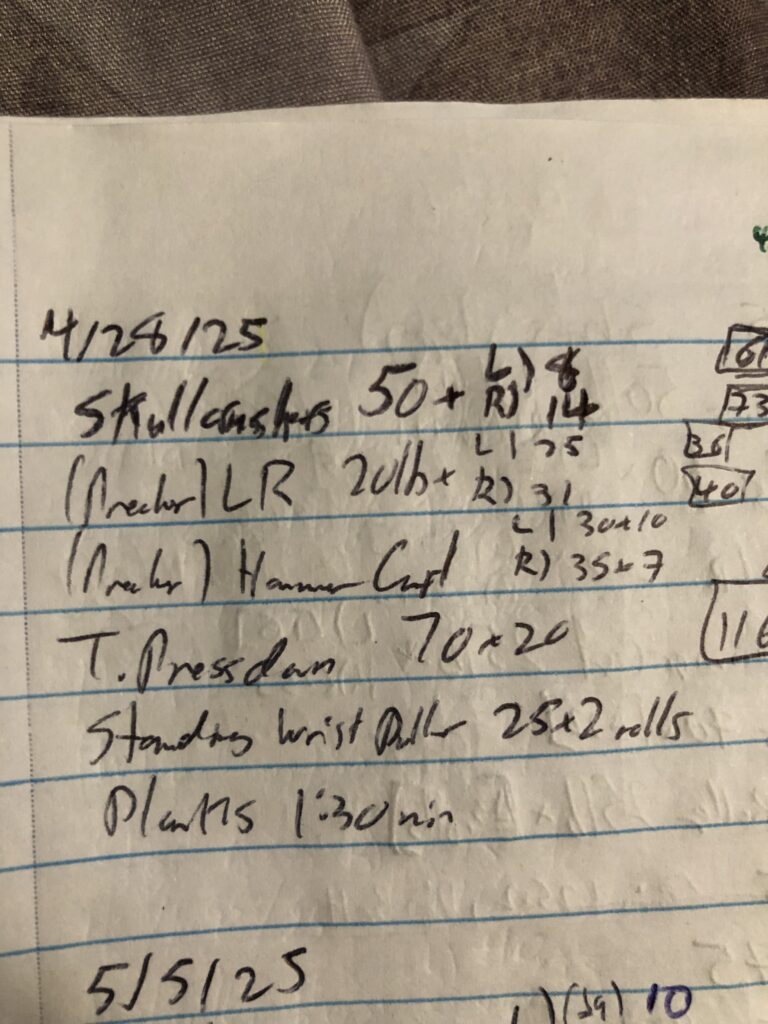 4/28/25
Skullcrushers 50 x L) 8
R) 14
61
73
(Preacher) LR 20lb x L) 25
R) 31
36
40
(Preacher) Hammer Curl L) 30x10
R) 35x7
T. Pressdown 70x20
116
Standing Wrist Roller 25x2 rolls
Planks 1:30 min
5/5/25
10